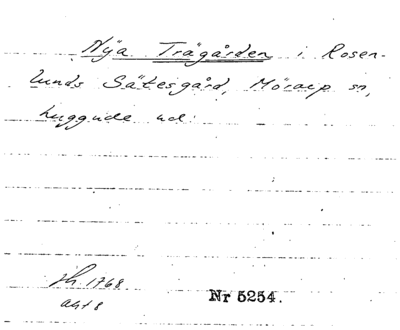 Nya Trägården i Rosen-
lunds Sätesgård, Mörarp sn,
huggude ud.
Jh 1768.
akt 8
Nr 5254.